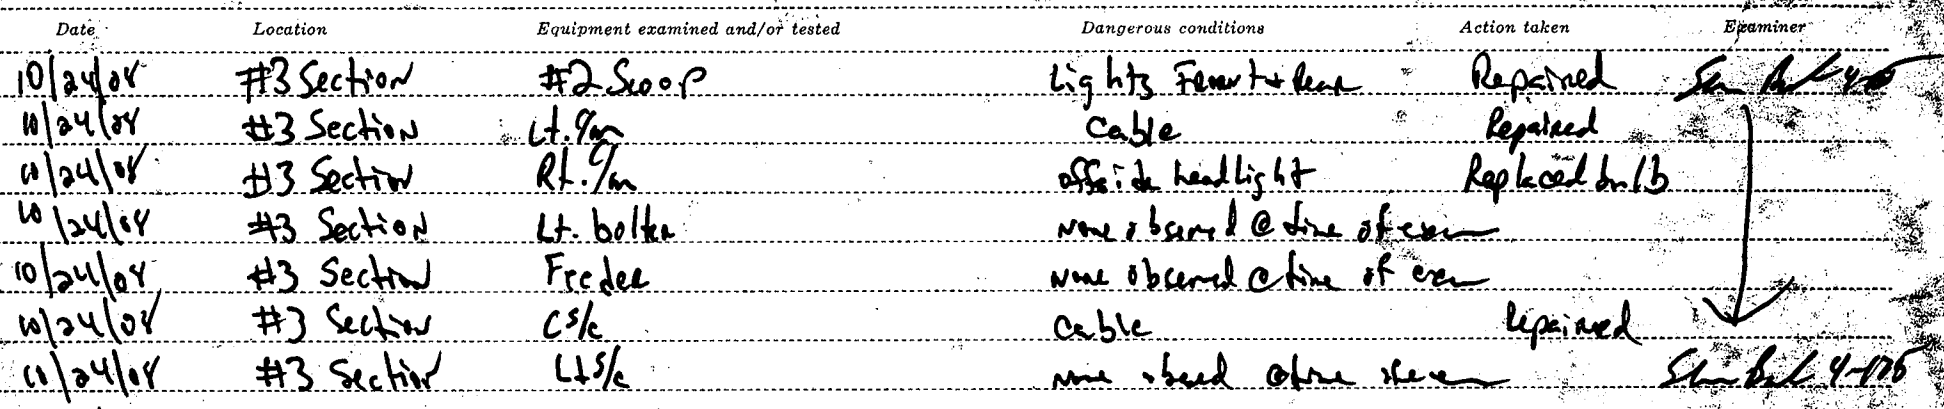 Date Location Equipment examined and/or tested Dangerous conditions Action taken Examiner
10/24/08 #3 Section #2 Scoop Lights Front + Rear Repaired
10/24/08 #3 Section Lt. c/m Cable Repaired
10/24/08 #3 Section Rt. c/m offside headlight Replaced bulb
10/24/08 #3 Section Lt. bolter none observed @ time of exam
10/24/08 #3 Section Feeder none observed @ time of exam
10/24/08 #3 Section C s/c Cable Repaired
10/24/08 #3 Section Lt s/c none obsed @ time